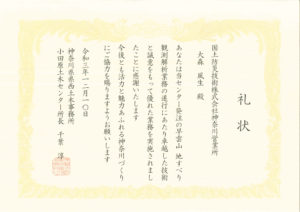 礼状
国土防災技術株式会社神奈川営業所
大森 風生 殿
あなたは当センター発注の早雲山 地すべり
観測解析業務の遂行にあたり卓越した技術
と誠意をもって優れた業務を実施されまし
たことに感謝いたします
今後とも活力と魅力あふれる神奈川づくり
にご協力を賜りますようお願いします
令和三年一二月一〇日
神奈川県県西土木事務所
小田原土木センター所長 千葉 淳